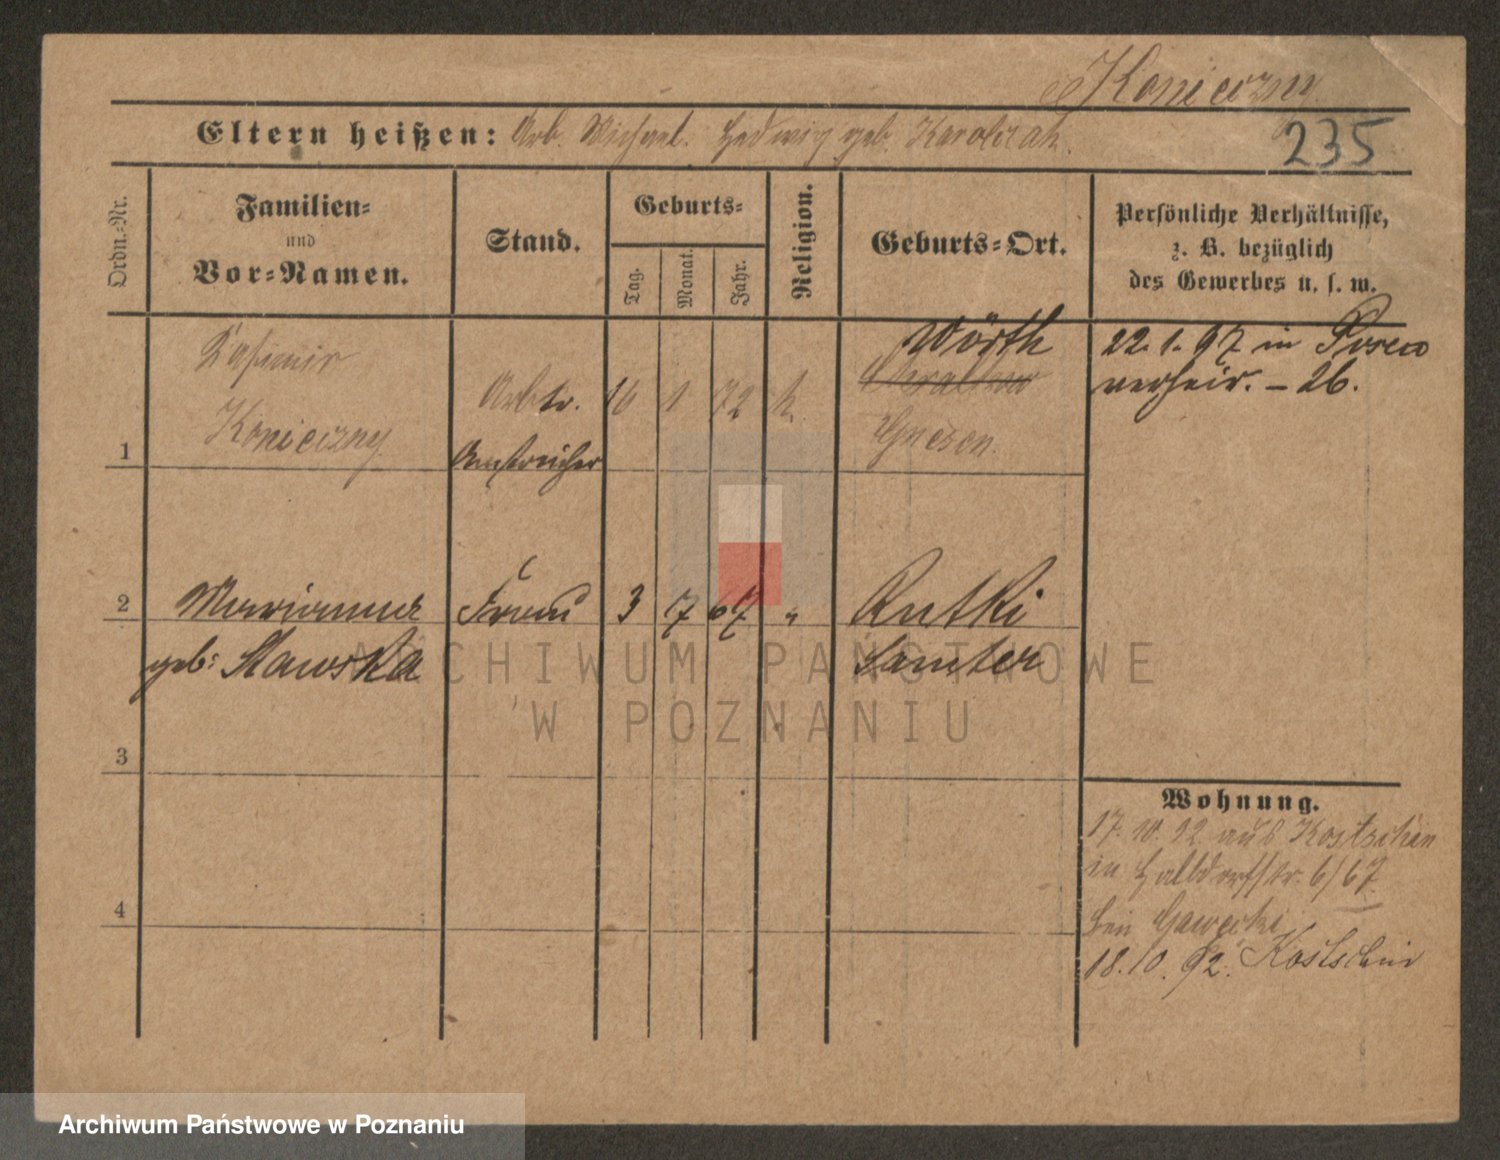 Konieczny
Eltern heißen: Arb. Michael. Hedwig geb. Karolczak.
235
Ordn.-Nr.
Familien-
und
Vor-Namen.
Stand.
Geburts-
Tag.
Monat.
Jahr.
Religion.
Geburts-Ort.
Persönliche Verhältnisse,
z. B. bezüglich
des Gewerbes u. s. w.
1
Kasimir
Konieczny
Arbtr.
Anstreicher
16 1 72 k.
Wörth
Gnesen.
22. 1. 97 in Posen
verheir. – 26.
2
Marianna
geb: Stawska
Frau
3 7 67 "
Rutki
Samter
3
4
Wohnung.
17. 10. 92 aus Kostschin
in Halldorfstr. 6/67
bei Gawecki
18. 10. 92. Kostschin
ARCHIWUM PAŃSTWOWE
W POZNANIU
Archiwum Państwowe w Poznaniu